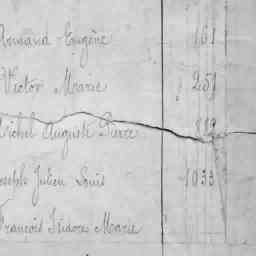 Armand Eugène 161
Victor Marie 251
Michel Auguste Pierre
Joseph Julien Louis 1033
François Isidore Marie